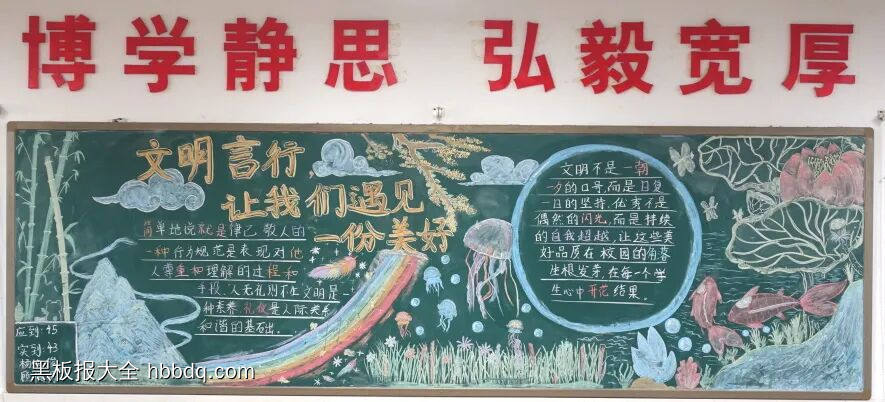 博学静思 弘毅宽厚
文明言行，
让我们遇见
一份美好
简单地说就是律己、敬人的
一种行为规范是表现对他
人尊重和理解的过程和
手段，"人无礼则不生"文明是一
种素养，礼仪是人际关系
和谐的基石出。
文明不是一朝
一夕的口号，而是日复
一日的坚持，优秀不是
偶然的闪光，而是持续
的自我超越，让这些美
好品质在校园的角落
生根发芽，在每一个学
生心中开花结果。
应到：45
实到：43
黑板报大全 hbbdq.com